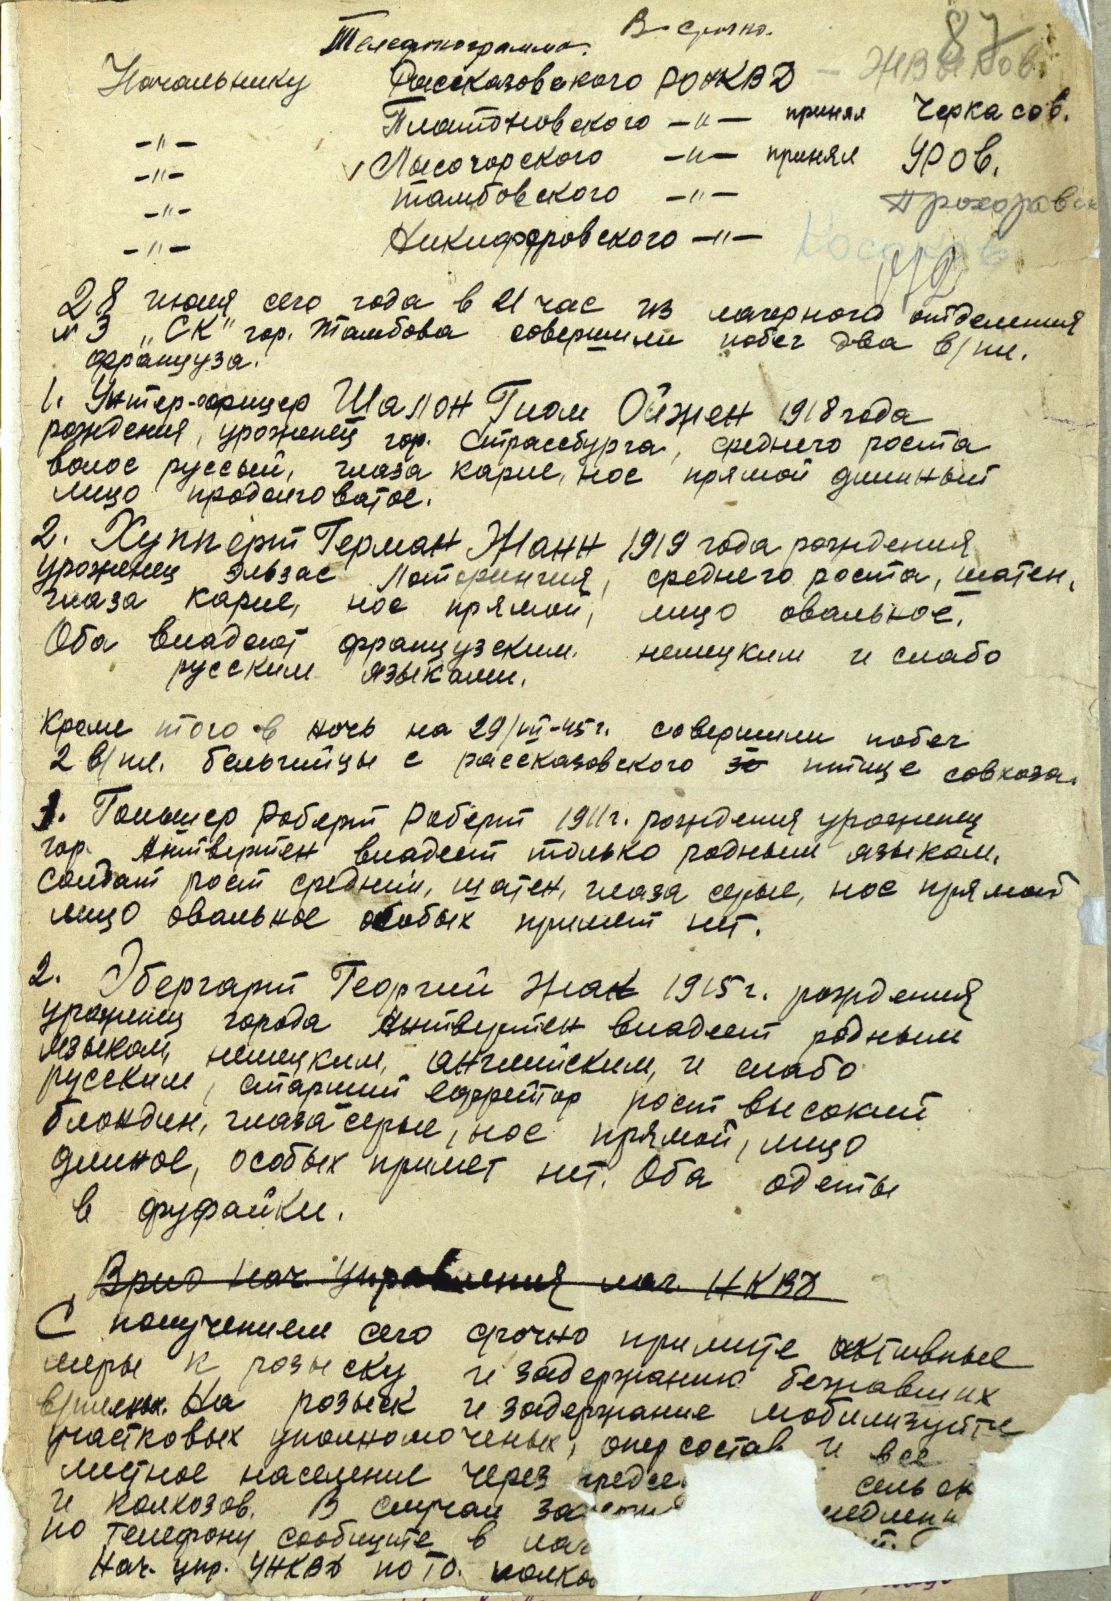 87
Телефонограмма. В-срочно.
Начальнику Рассказовского РОНКВД —
-"- Платоновского -"- принял Черкасов.
-"- √ Лысогорского -"- принял УРОВ.
-"- Тамбовского -"-
-"- Никифоровского -"-
28 июля сего года в 21 час из лагерного отделения
№3 „СК" гор. Тамбова совершили побег два в/пл.
француза.
1. Унтер-офицер Шалон Гиом Ойжен 1918 года
рождения, уроженец гор. Страссбурга, среднего роста
волос руссый, глаза карие, нос прямой длинный
лицо продолговатое.
2. Хупперт Герман Жанн 1919 года рождения
уроженец Эльзас Лотерингия, среднего роста, шатен,
глаза карие, нос прямой, лицо овальное.
Оба владеют французским. немецким и слабо
русским языками.
Кроме того в ночь на 29/VII-45г. совершили побег
2 в/пл. бельгийцы с рассказовского птице совхоза.
1. Гольшер Роберт Роберт 1911г. рождения уроженец
гор. Антверпен владеет только родным языком.
Солдат рост средний, шатен, глаза серые, нос прямой
лицо овальное особых примет нет.
2. Эбергарт Георгий Жак 1915г. рождения
уроженец города Антверпен владеет родным
языком, немецким, английским, и слабо
русским, старший ефрейтор рост высокий
блондин, глаза серые, нос прямой, лицо
длиное, особых примет нет. Оба одеты
в фуфайки.
Врид нач. Управления лаг. НКВД
С получением сего срочно примите активные
меры к розыску и задержанию бежавших
в/пленых. На розыск и задержание мобилизуйте
участковых уполномоченых, оперсостав и все
местное население через предсе сельск
и колхозов. В случаи за
по телефону сообщите в лаг
Нач. упр. УНКВД по ТО. полко